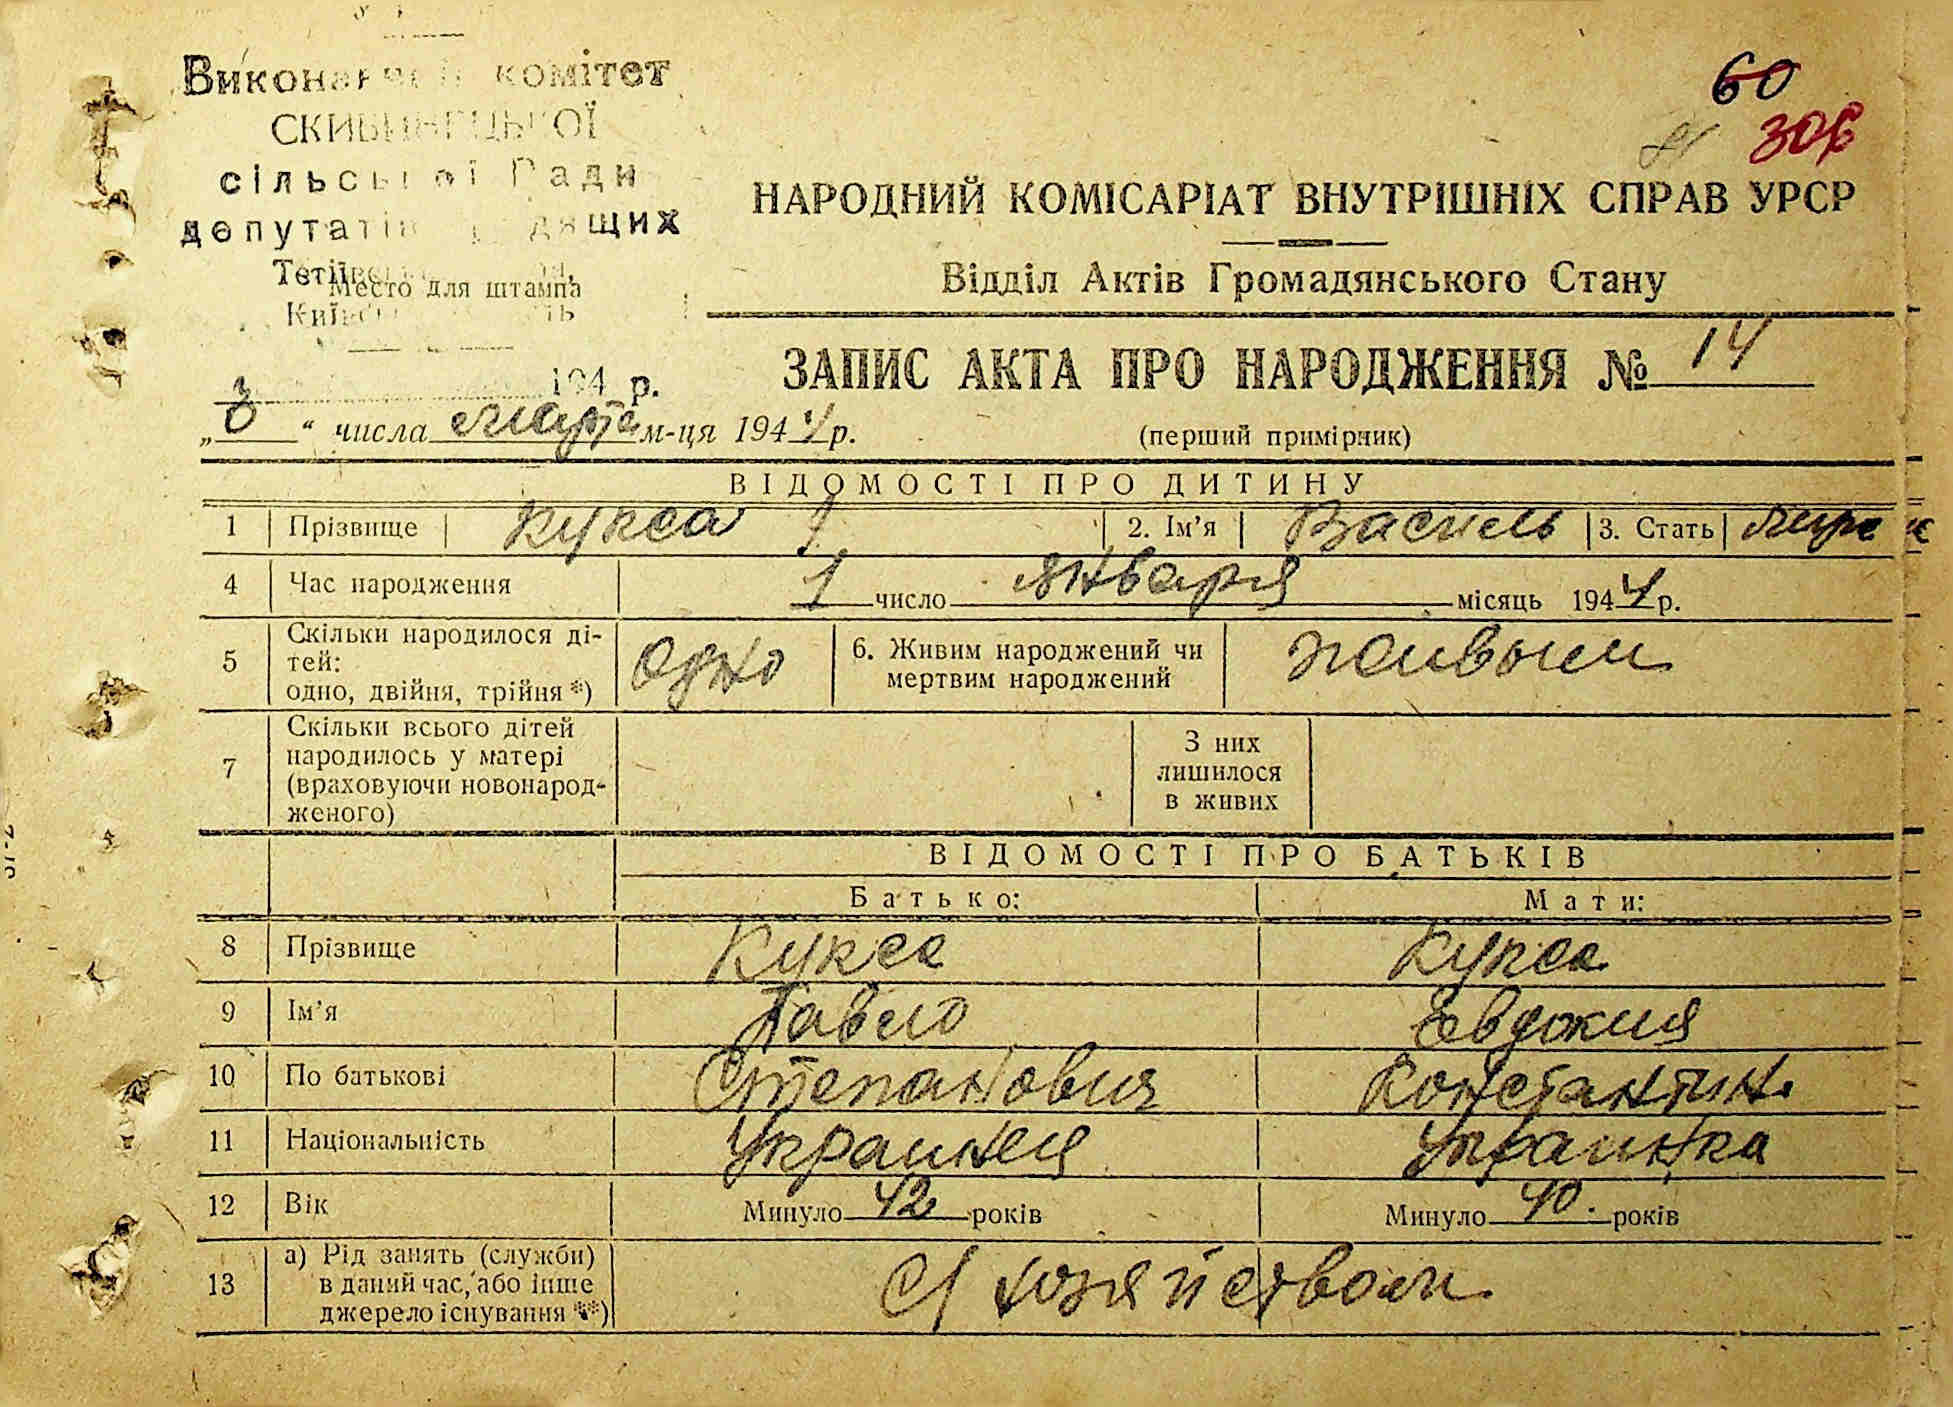 Виконавчий комітет
СКИБИНЕЦЬКОЇ
сільської Ради
депутатів трудящих
Тетіївськ
Место для штампа
Київ
60
306
НАРОДНИЙ КОМІСАРІАТ ВНУТРІШНІХ СПРАВ УРСР
Відділ Актів Громадянського Стану
ЗАПИС АКТА ПРО НАРОДЖЕННЯ № 14
194 р.
„8“ числа марта м-ця 1944 р.
(перший примірник)
ВІДОМОСТІ ПРО ДИТИНУ
1 Прізвище Кукса 2. Ім’я Василь 3. Стать
4 Час народження 1 число января місяць 1944 р.
5 Скільки народилося ді-
тей:
одно, двійня, трійня *) одно 6. Живим народжений чи
мертвим народжений живым
7 Скільки всього дітей
народилось у матері
(враховуючи новонарод-
женого) З них
лишилося
в живих
ВІДОМОСТІ ПРО БАТЬКІВ
Батько: Мати:
8 Прізвище Кукса Кукса
9 Ім’я Павло Евдокия
10 По батькові Степанович Константин.
11 Національність Украинец Украинка
12 Вік Минуло 42 років Минуло 40. років
13 а) Рід занять (служби)
в даний час, або інше
джерело існування **) С/хозяйством